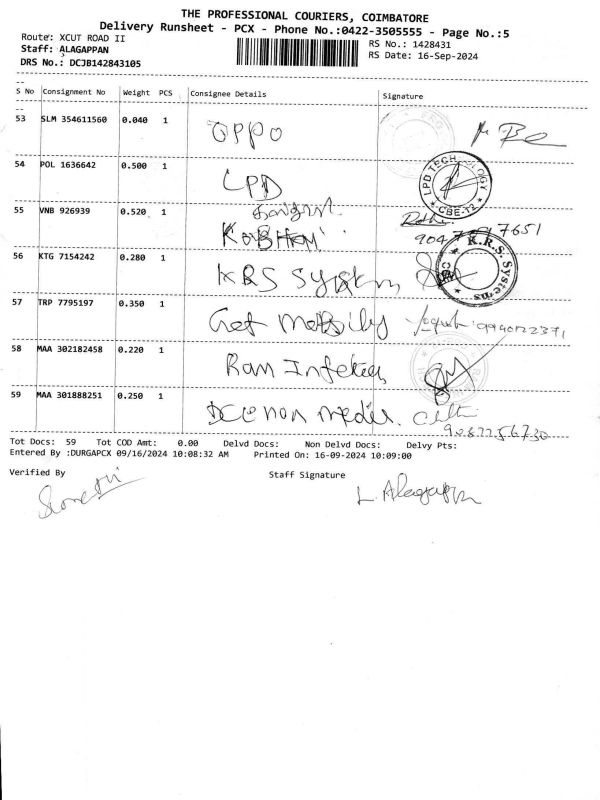 THE PROFESSIONAL COURIERS, COIMBATORE
Delivery Runsheet - PCX - Phone No.:0422-3505555 - Page No.:5
Route: XCUT ROAD II
RS No.: 1428431
Staff: ALAGAPPAN
RS Date: 16-Sep-2024
DRS No.: DCJB142843105
S No Consignment No Weight PCS Consignee Details Signature
53 SLM 354611560 0.040 1 OPPO
54 POL 1636642 0.500 1 LPD
LPD TECHNOLOGY
* CBE-12 *
55 VNB 926939 0.520 1
56 KTG 7154242 0.280 1 KRS System
K.R.S. Systems
57 TRP 7795197 0.350 1 Get
58 MAA 302182458 0.220 1 Ram
59 MAA 301888251 0.250 1
Tot Docs: 59 Tot COD Amt: 0.00 Delvd Docs: Non Delvd Docs: Delvy Pts:
Entered By :DURGAPCX 09/16/2024 10:08:32 AM Printed On: 16-09-2024 10:09:00
Verified By Staff Signature
L. Alagappan